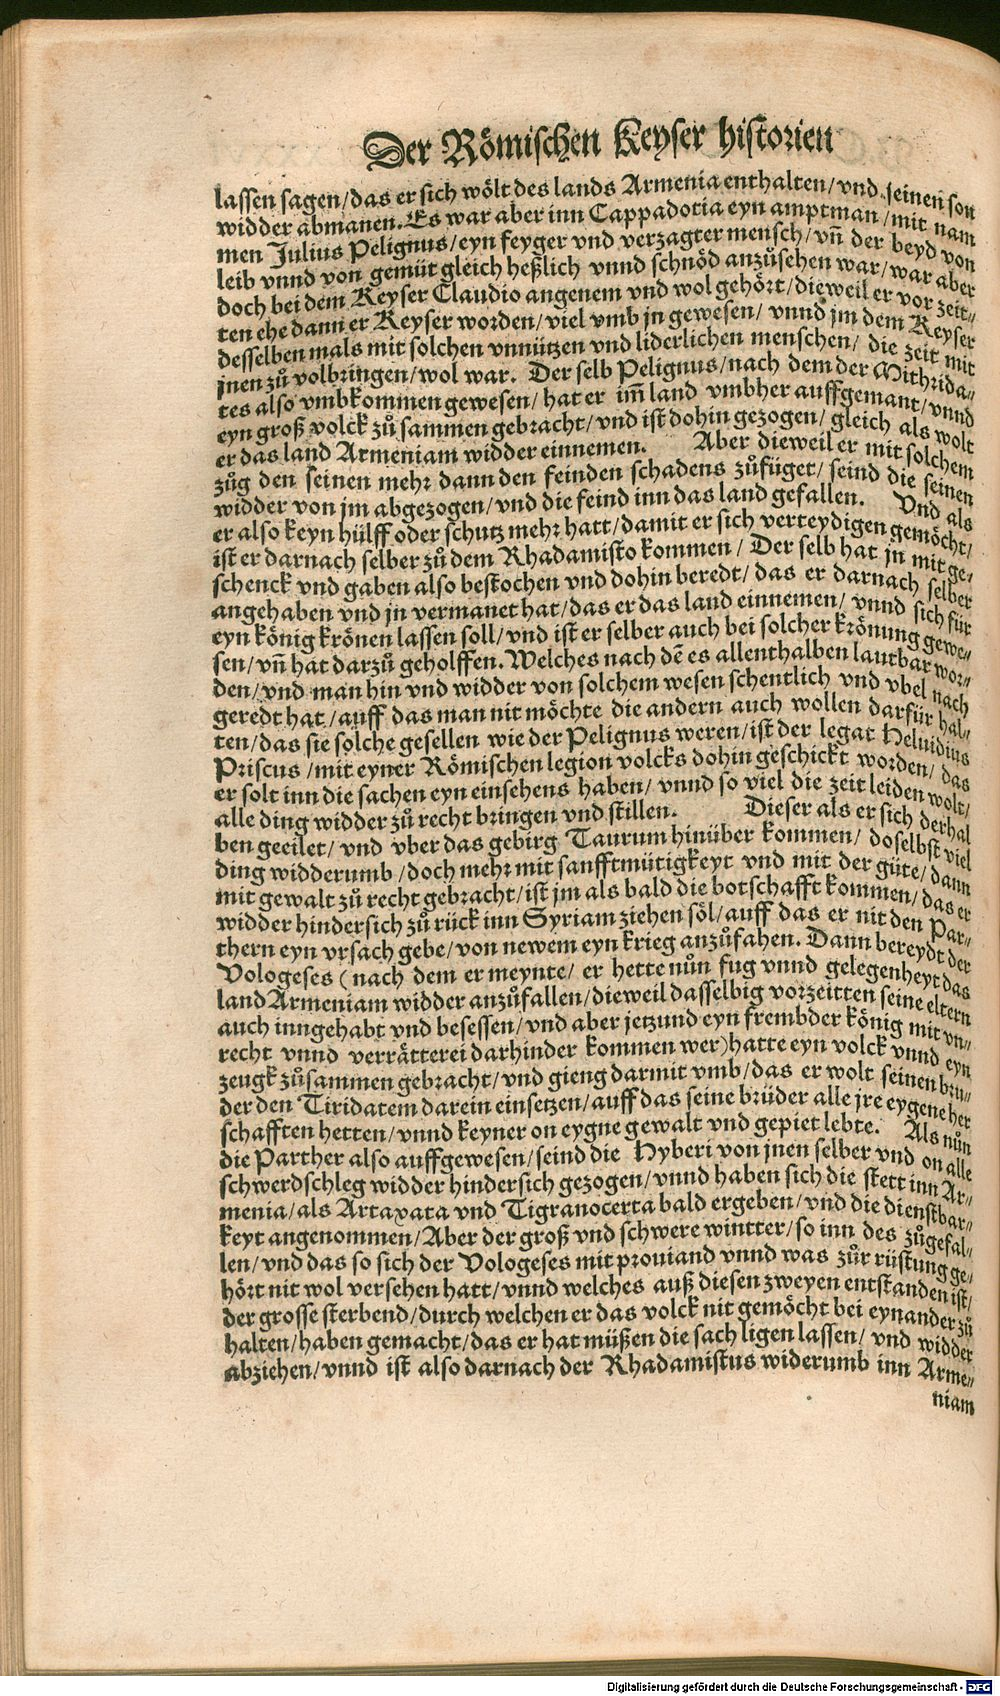 Der Römischen Keyser historien
lassen sagen/das er sich wölt des lands Armenia enthalten/vnd seinen son
widder abmanen. Es war aber inn Cappadocia eyn amptman/mit nam
men Julius Pelignus/eyn feyger vnd verzagter mensch/vn̄ der beyd von
leib vnnd von gemüt gleich heßlich vnnd schnöd anzůsehen war/war aber
doch bei dem Keyser Claudio angenem vnd wol gehört/dieweil er vor zeit⸗
ten ehe dann er Keyser worden/viel vmb jn gewesen/vnnd jm dem Keyser
desselben mals mit solchen vnnützen vnd liderlichen menschen/ die zeit mit
jnen zů volbringen/wol war. Der selb Pelignus/nach dem der Mithrida⸗
tes also vmbkommen gewesen/hat er im̄ land vmbher auffgemant/vnnd
eyn groß volck zů sammen gebracht/vnd ist dohin gezogen/ gleich als wolt
er das land Armeniam widder einnemen. Aber dieweil er mit solchem
züg den seinen mehr dann den feinden schadens zůfüget/ seind die seinen
widder von jm abgezogen/vnd die feind inn das land gefallen. Vnd als
er also keyn hülff oder schutz mehr hatt/damit er sich verteydigen gemöcht/
ist er darnach selber zů dem Rhadamisto kommen/ Der selb hat jn mit ge⸗
schenck vnd gaben also bestochen vnd dohin beredt/ das er darnach selber
angehaben vnd jn vermanet hat/das er das land einnemen/ vnnd sich für
eyn könig krönen lassen soll/vnd ist er selber auch bei solcher krönung gewe⸗
sen/vn̄ hat darzů geholffen. Welches nach dē es allenthalben lautbar wor⸗
den/vnd man hin vnd widder von solchem wesen schentlich vnd vbel nach
geredt hat/auff das man nit möchte die andern auch wollen darfür hal⸗
ten/das sie solche gesellen wie der Pelignus weren/ist der legat Heluidius
Priscus/mit eyner Römischen legion volcks dohin geschickt worden/ das
er solt inn die sachen eyn einsehens haben/ vnnd so viel die zeit leiden wolt/
alle ding widder zů recht bringen vnd stillen. Dieser als er sich derhal
ben geeilet/ vnd vber das gebirg Taurum hinüber kommen/ doselbst viel
ding widderumb/doch mehr mit sanfftmütigkeyt vnd mit der güte/ dann
mit gewalt zů recht gebracht/ist jm als bald die botschafft kommen/das er
widder hindersich zů rück inn Syriam ziehen söl/auff das er nit den Par⸗
thern eyn vrsach gebe/von newem eyn krieg anzůfahen. Dann bereydt der
Vologeses (nach dem er meynte/ er hette nůn fug vnnd gelegenheyt das
land Armeniam widder anzůfallen/dieweil dasselbig vorzeitten seine eltern
auch inngehabt vnd besessen/vnd aber jetzund eyn frembder könig mit vn⸗
recht vnnd verrätterei darhinder kommen wer)hatte eyn volck vnnd eyn
zeugk zůsammen gebracht/vnd gieng darmit vmb/das er wolt seinen bru⸗
der den Tiridatem darein einsetzen/auff das seine brüder alle jre eygene her
schafften hetten/vnnd keyner on eygne gewalt vnd gepiet lebte. Als nůn
die Parther also auffgewesen/seind die Hyberi von jnen selber vnd on alle
schwerdschleg widder hindersich gezogen/vnnd haben sich die stett inn Ar⸗
menia/als Artaxata vnd Tigranocerta bald ergeben/vnd die dienstbar⸗
keyt angenommen/Aber der groß vnd schwere wintter/so inn des zůgefal⸗
len/vnd das so sich der Vologeses mit prouiand vnnd was zůr rüstung ge⸗
hört nit wol versehen hatt/vnnd welches auß diesen zweyen entstanden ist/
der grosse sterbend/durch welchen er das volck nit gemöcht bei eynander zů
halten/haben gemacht/das er hat müßen die sach ligen lassen/ vnd widder
abziehen/vnnd ist also darnach der Rhadamistus widerumb inn Arme⸗
niam
Digitalisierung gefördert durch die Deutsche Forschungsgemeinschaft - DFG